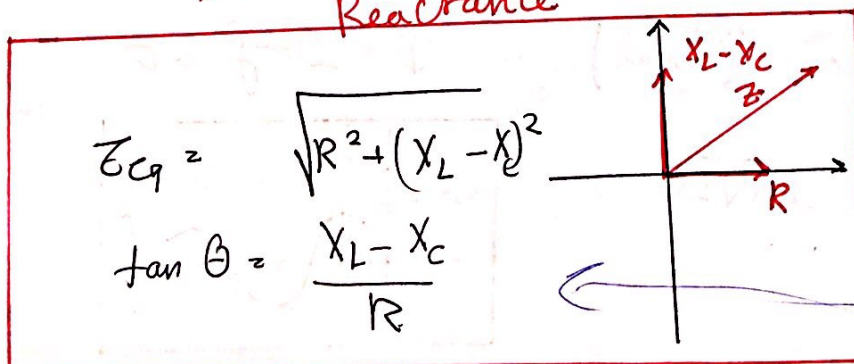 Reactance
Z_eq = √R² + (X_L - X_C)²
tan θ = X_L - X_C / R
X_L - X_C
Z
R